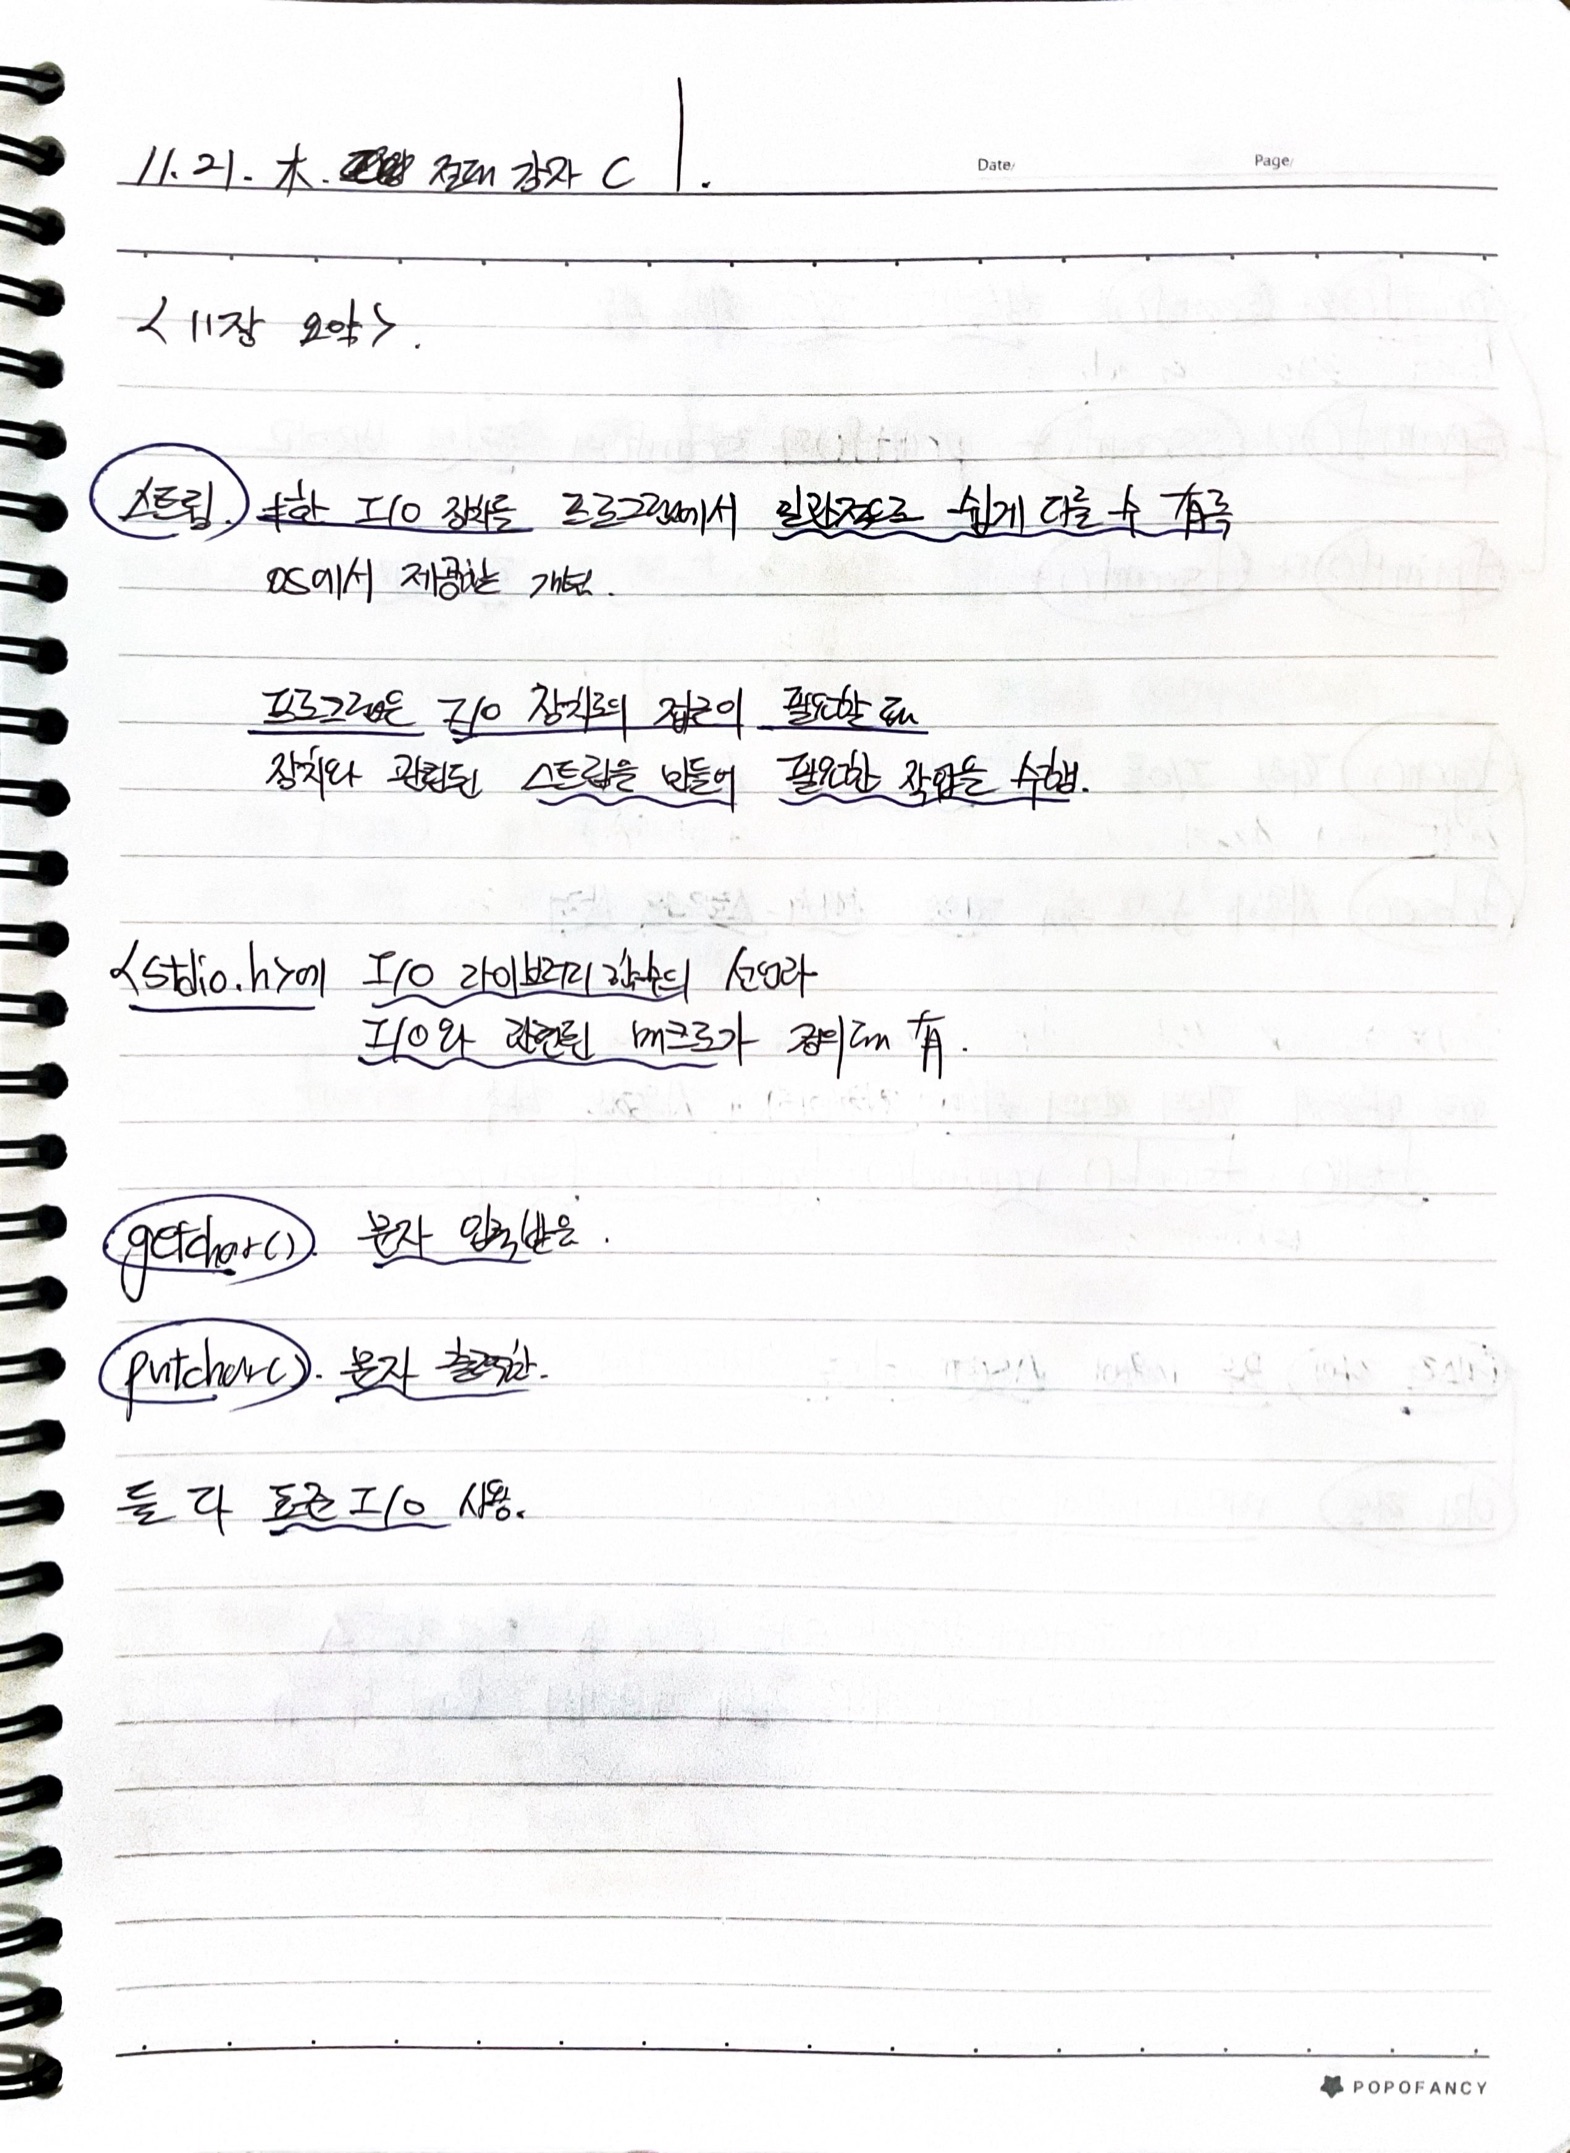 11.21. 木. 절대 강자 C
Date/ Page/
<11장 요약>.
스트림. I/O 장치를 프로그램에서 일관적으로 쉽게 다룰 수 有록
OS에서 제공하는 개념.
프로그램은 I/O 장치로의 접근이 필요할 때
장치와 관련된 스트림을 만들어 필요한 작업을 수행.
<stdio.h>에 I/O 라이브러리 함수의 선언과
I/O와 관련된 매크로가 정의돼 有.
getchar(). 문자 입력받음.
putchar(). 문자 출력함.
둘 다 표준 I/O 사용.
POPOFANCY